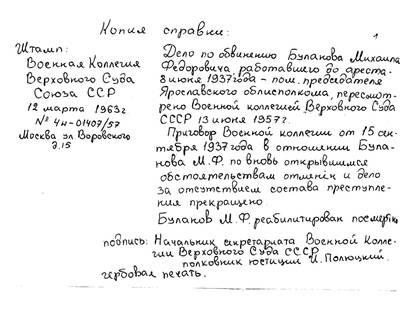 Копия справки:
1
Штамп:
Военная Коллегия
Верховного Суда
Союза ССР
12 марта 1963г
№ 4н-01407/57
Москва ул Воровского
д.15
Дело по обвинению Буланова Михаила
Федоровича работавшего до ареста-
8 июня 1937 года - пом. председателя
Ярославского облисполкома, пересмот-
рено Военной коллегией Верховного Суда
СССР 13 июня 1957г.
Приговор Военной коллегии от 15 сен-
тября 1937 года в отношении Була-
нова М.Ф. по вновь открывшимся
обстоятельствам отменён и дело
за отсутствием состава преступле-
ния прекращено.
Буланов М.Ф. реабилитирован посмертно
подпись: Начальник секретариата Военной Колле-
гии Верховного Суда СССР
полковник юстиции И. Полюцкий.
гербовая печать.